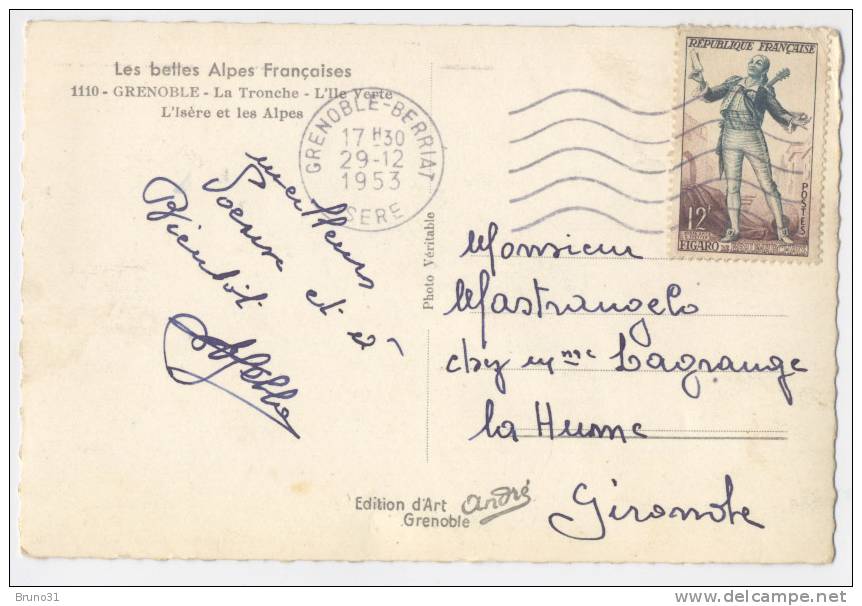 Les belles Alpes Françaises
1110 - GRENOBLE - La Tronche - L'Ile Verte
L'Isère et les Alpes
GRENOBLE-BERRIAT
17 H 30
29-12
1953
ISERE
RÉPUBLIQUE FRANÇAISE
POSTES
12F
FIGARO
meilleurs
et à
Bientôt
Photo Véritable
Monsieur
Mastrangelo
chez Mme Lagrange
la Hume
Gironde
Edition d'Art André
Grenoble
Bruno31
www.delcampe.net